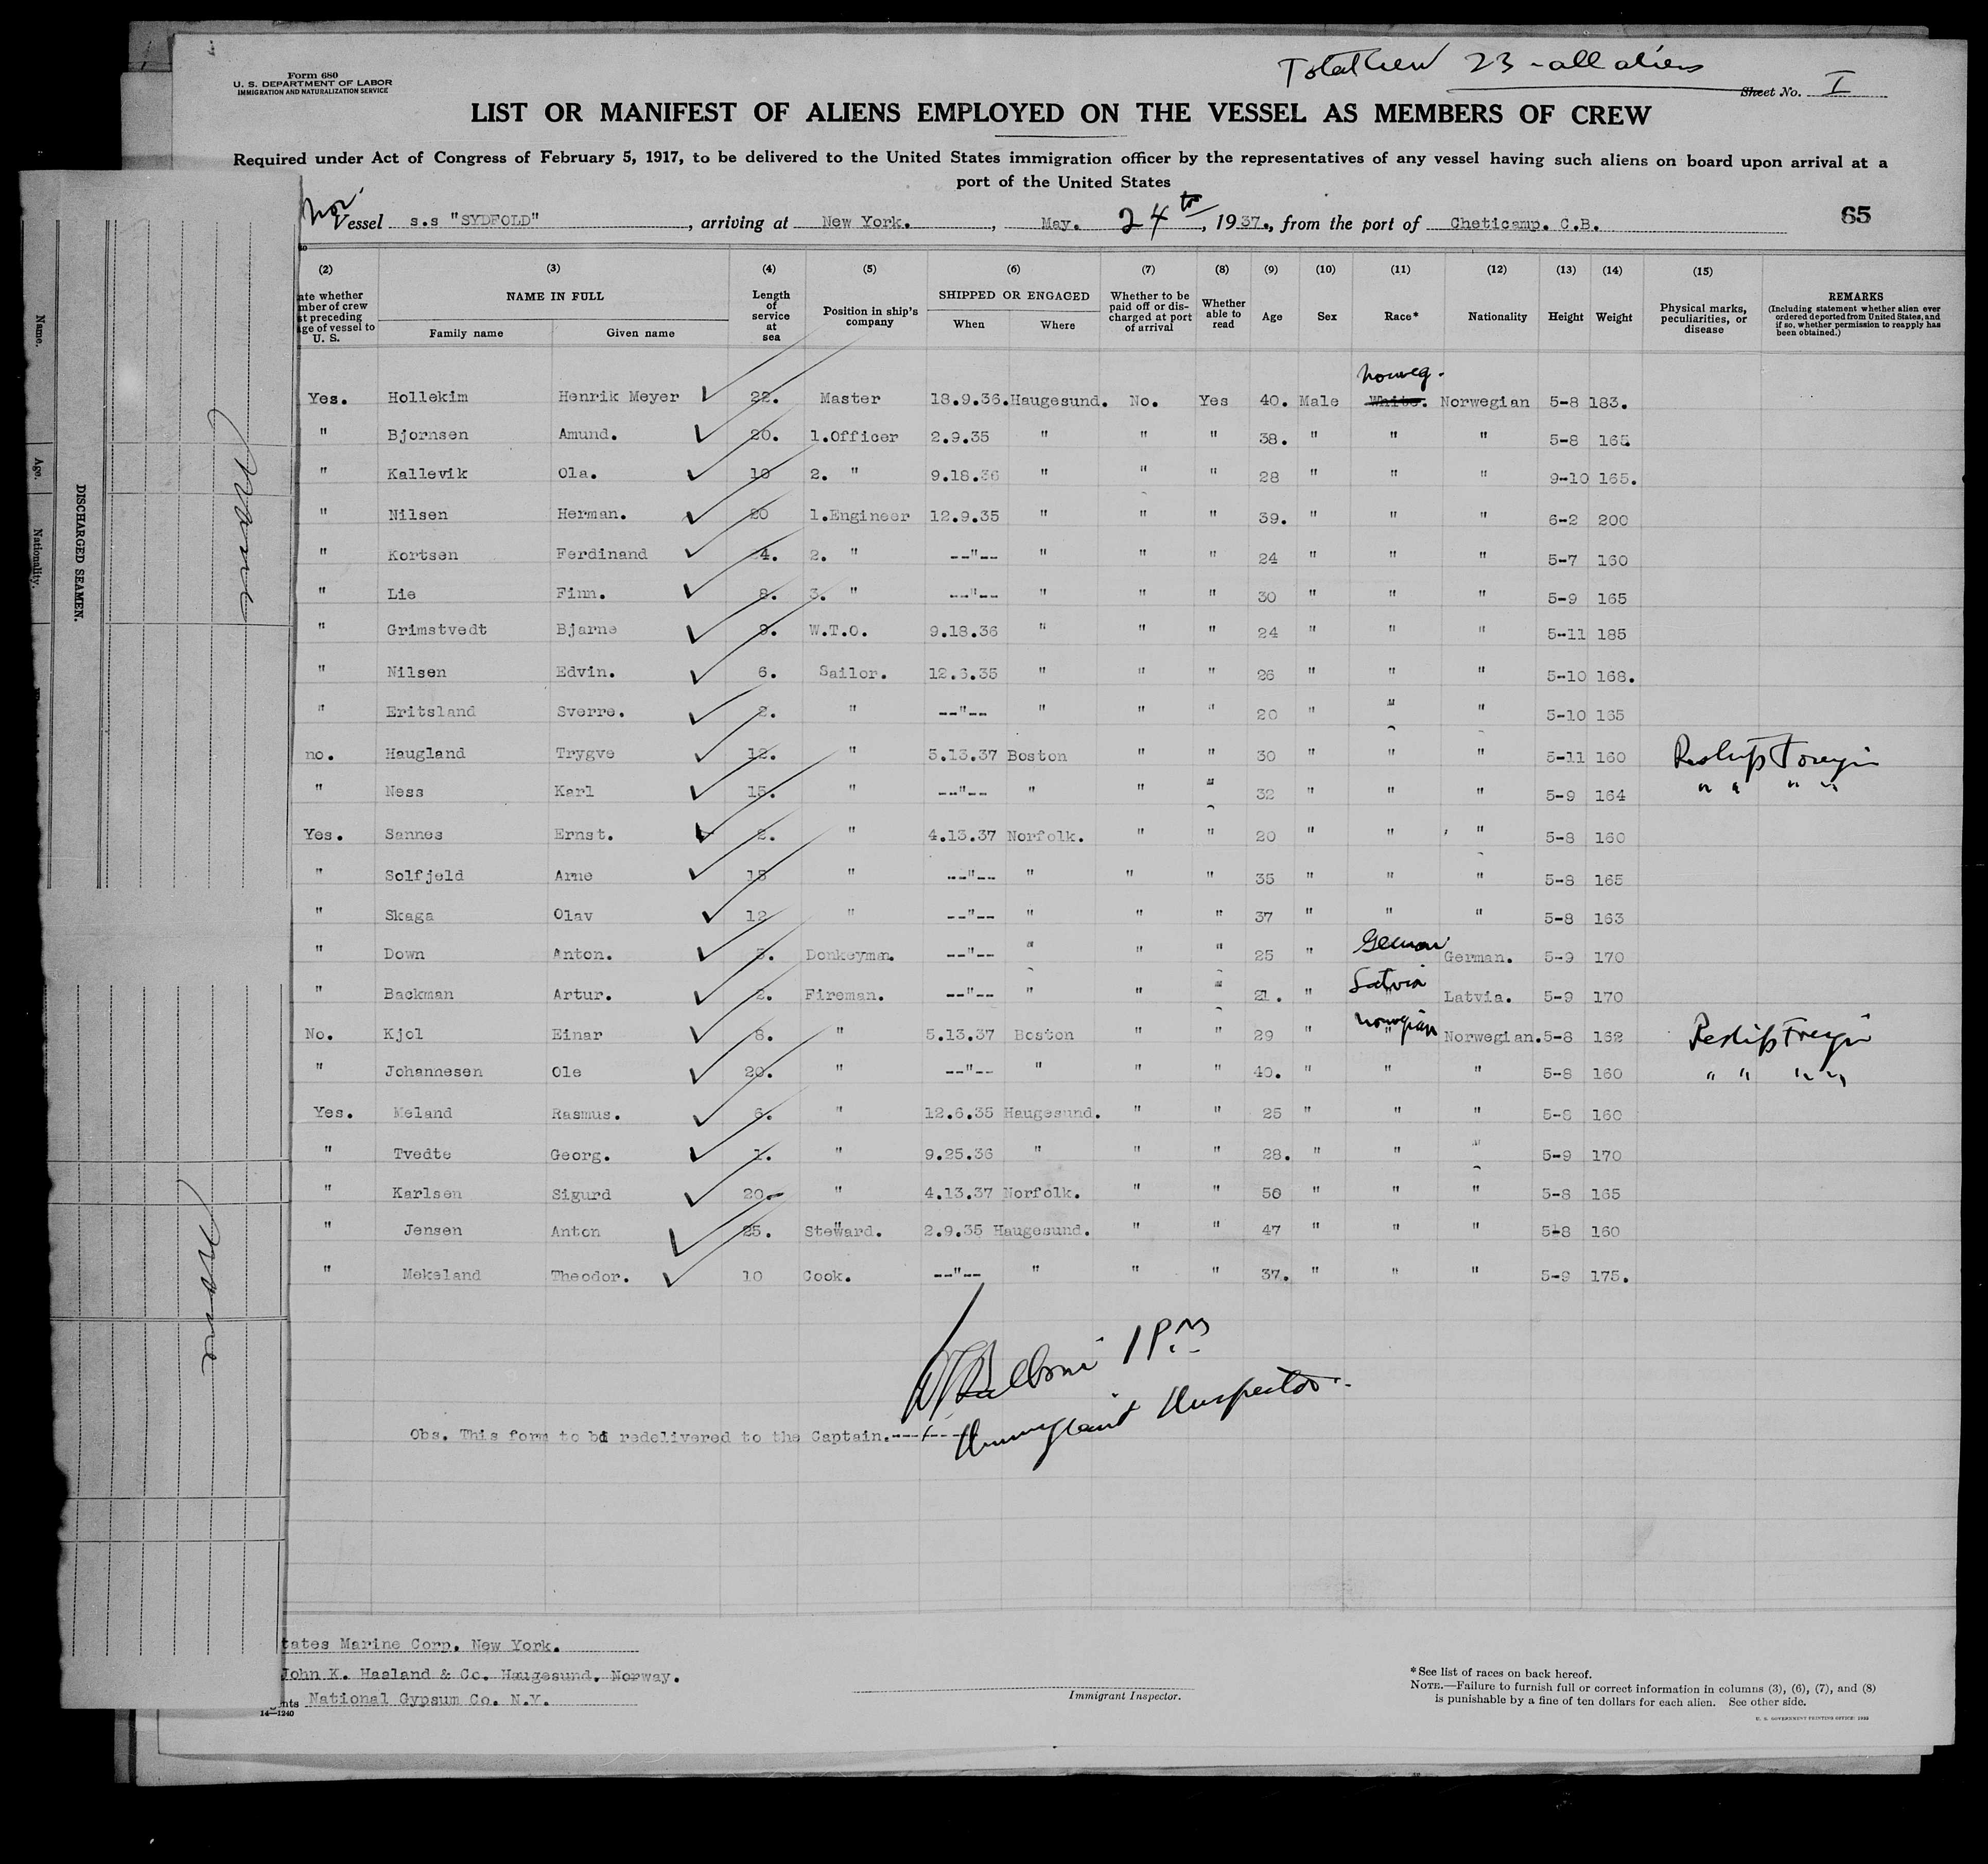 Total Crew 23 - all aliens
Form 680
U. S. DEPARTMENT OF LABOR
IMMIGRATION AND NATURALIZATION SERVICE
Sheet No. I
LIST OR MANIFEST OF ALIENS EMPLOYED ON THE VESSEL AS MEMBERS OF CREW
Required under Act of Congress of February 5, 1917, to be delivered to the United States immigration officer by the representatives of any vessel having such aliens on board upon arrival at a
port of the United States
Nor.
Vessel s.s "SYDFOLD", arriving at New York., May. 24th, 1937., from the port of Cheticamp. C.B.
65
(2) (3) (4) (5) (6) (7) (8) (9) (10) (11) (12) (13) (14) (15)
ate whether
mber of crew
st preceding
age of vessel to
U. S.
NAME IN FULL
Family name Given name
Length
of
service
at
sea
Position in ship's
company
SHIPPED OR ENGAGED
When Where
Whether to be
paid off or dis-
charged at port
of arrival
Whether
able to
read
Age
Sex
Race*
Nationality
Height
Weight
Physical marks,
peculiarities, or
disease
REMARKS
(Including statement whether alien ever
ordered deported from United States, and
if so, whether permission to reapply has
been obtained.)
Norweg.
Yes. Hollekim Henrik Meyer 22. Master 18.9.36. Haugesund. No. Yes 40. Male White. Norwegian 5-8 183.
" Bjornsen Amund. 20. 1.Officer 2.9.35 " " " 38. " " " 5-8 165
" Kallevik Ola. 10 2. " 9.18.36 " " " 28 " " " 9-10 165.
" Nilsen Herman. 20 1.Engineer 12.9.35 " " " 39. " " " 6-2 200
" Kortsen Ferdinand 4. 2. " --"-- " " " 24 " " " 5-7 160
" Lie Finn. 8. 3. " --"-- " " " 30 " " " 5-9 165
" Grimstvedt Bjarne 9. W.T.O. 9.18.36 " " " 24 " " " 5-11 185
" Nilsen Edvin. 6. Sailor. 12.6.35 " " " 26 " " " 5-10 168.
" Eritsland Sverre. 2. " --"-- " " " 20 " " " 5-10 165
no. Haugland Trygve 12. " 5.13.37 Boston " " 30 " " " 5-11 160 Reship Foreign
" Ness Karl 15. " --"-- " " " 32 " " " 5-9 164 " " " "
Yes. Sannes Ernst. 2. " 4.13.37 Norfolk. " " 20 " " " 5-8 160
" Solfjeld Arne 15 " --"-- " " " 35 " " " 5-8 165
" Skaga Olav 12 " --"-- " " " 37 " " " 5-8 163
" Down Anton. 3. Donkeyman. --"-- " " " 25 " German German. 5-9 170
" Backman Artur. 2. Fireman. --"-- " " " 21. " Latvia Latvia. 5-9 170
No. Kjol Einar 8. " 5.13.37 Boston " " 29 " Norwegian Norwegian. 5-8 162 Reship Foreign
" Johannesen Ole 20. " --"-- " " " 40. " " " 5-8 160 " " " "
Yes. Meland Rasmus. 6. " 12.6.35 Haugesund. " " 25 " " " 5-8 160
" Tvedte Georg. 1. " 9.25.36 " " " 28. " " " 5-9 170
" Karlsen Sigurd 20. " 4.13.37 Norfolk. " " 50 " " " 5-8 165
" Jensen Anton 25. Steward. 2.9.35 Haugesund. " " 47 " " " 5-8 160
" Mekeland Theodor. 10 Cook. --"-- " " " 37. " " " 5-9 175.
1 P.M
Immigrant Inspector.
Obs. This form to be redelivered to the Captain.---
tates Marine Corp. New York.
John K. Hasland & Co. Haugesund. Norway.
nts National Gypsum Co. N.Y.
14—1240
Immigrant Inspector.
*See list of races on back hereof.
NOTE.—Failure to furnish full or correct information in columns (3), (6), (7), and (8)
is punishable by a fine of ten dollars for each alien. See other side.
Name.
Age.
Nationality.
DISCHARGED SEAMEN.
None
None